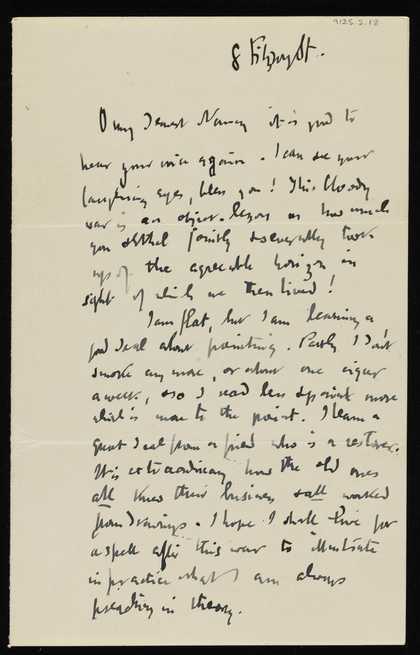 9125.2.12
8 Fitzroy St.
O my dearest Nancy it is good to
hear your voice again. I can see your
laughing eyes, bless you! This bloody
war is an object-lesson as to how much
you & Ethel jointly & severally took
up of the agreeable horizon in
sight of which we then lived!
I am flat, but I am learning a
good deal about painting. Partly I don't
smoke any more, or about one cigar
a week, so I read less & paint more
which is more to the point. I learn a
great deal from a friend who is a restorer.
It is extraordinary how the old ones
all knew their business & all worked
from drawings. I hope I shall live for
a spell after this war to illustrate
in practice what I am always
preaching in theory.